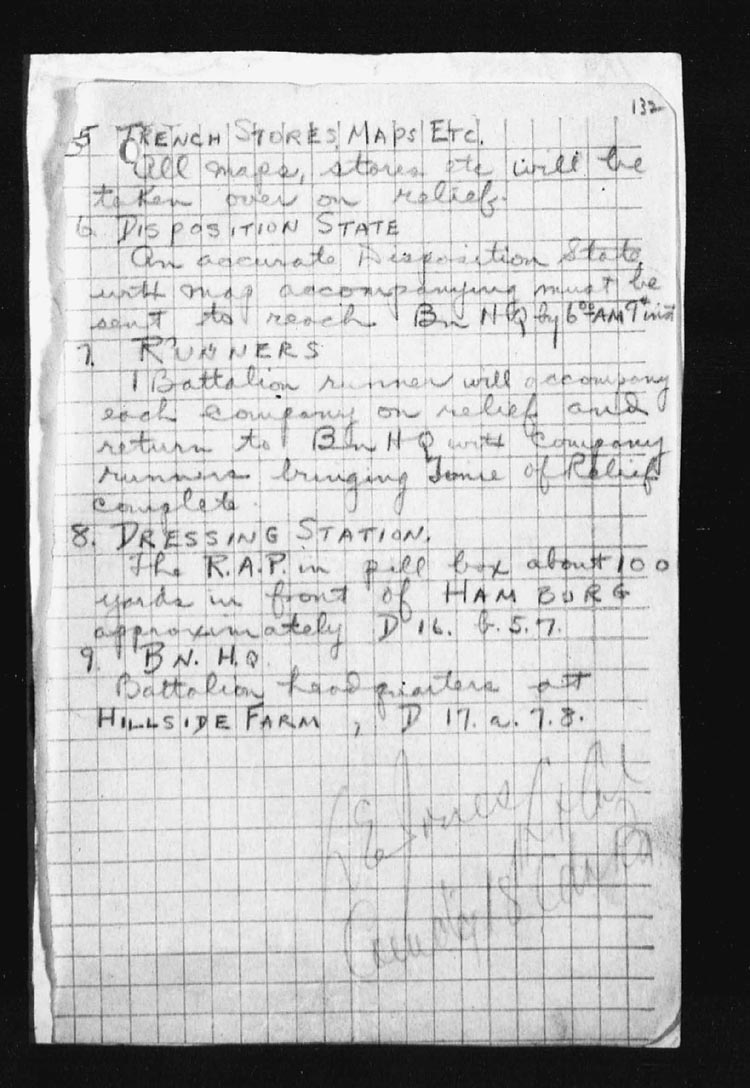 132
5 TRENCH STORES, MAPS ETC.
All maps, stores etc will be
taken over on relief.
6. DISPOSITION STATE
An accurate Disposition State
with map accompanying must be
sent to reach Bn HQ by 6°°AM 9th inst
7. RUNNERS
1 Battalion runner will accompany
each company on relief and
return to Bn HQ with company
runners bringing Time of Relief
complete.
8. DRESSING STATION.
The R.A.P. in pill box about 100
yards in front of HAMBURG
approximately D 16. b. 5.7.
9. BN. H.Q.
Battalion head quarters att
HILLSIDE FARM, D 17. a. 7.8.
Jones